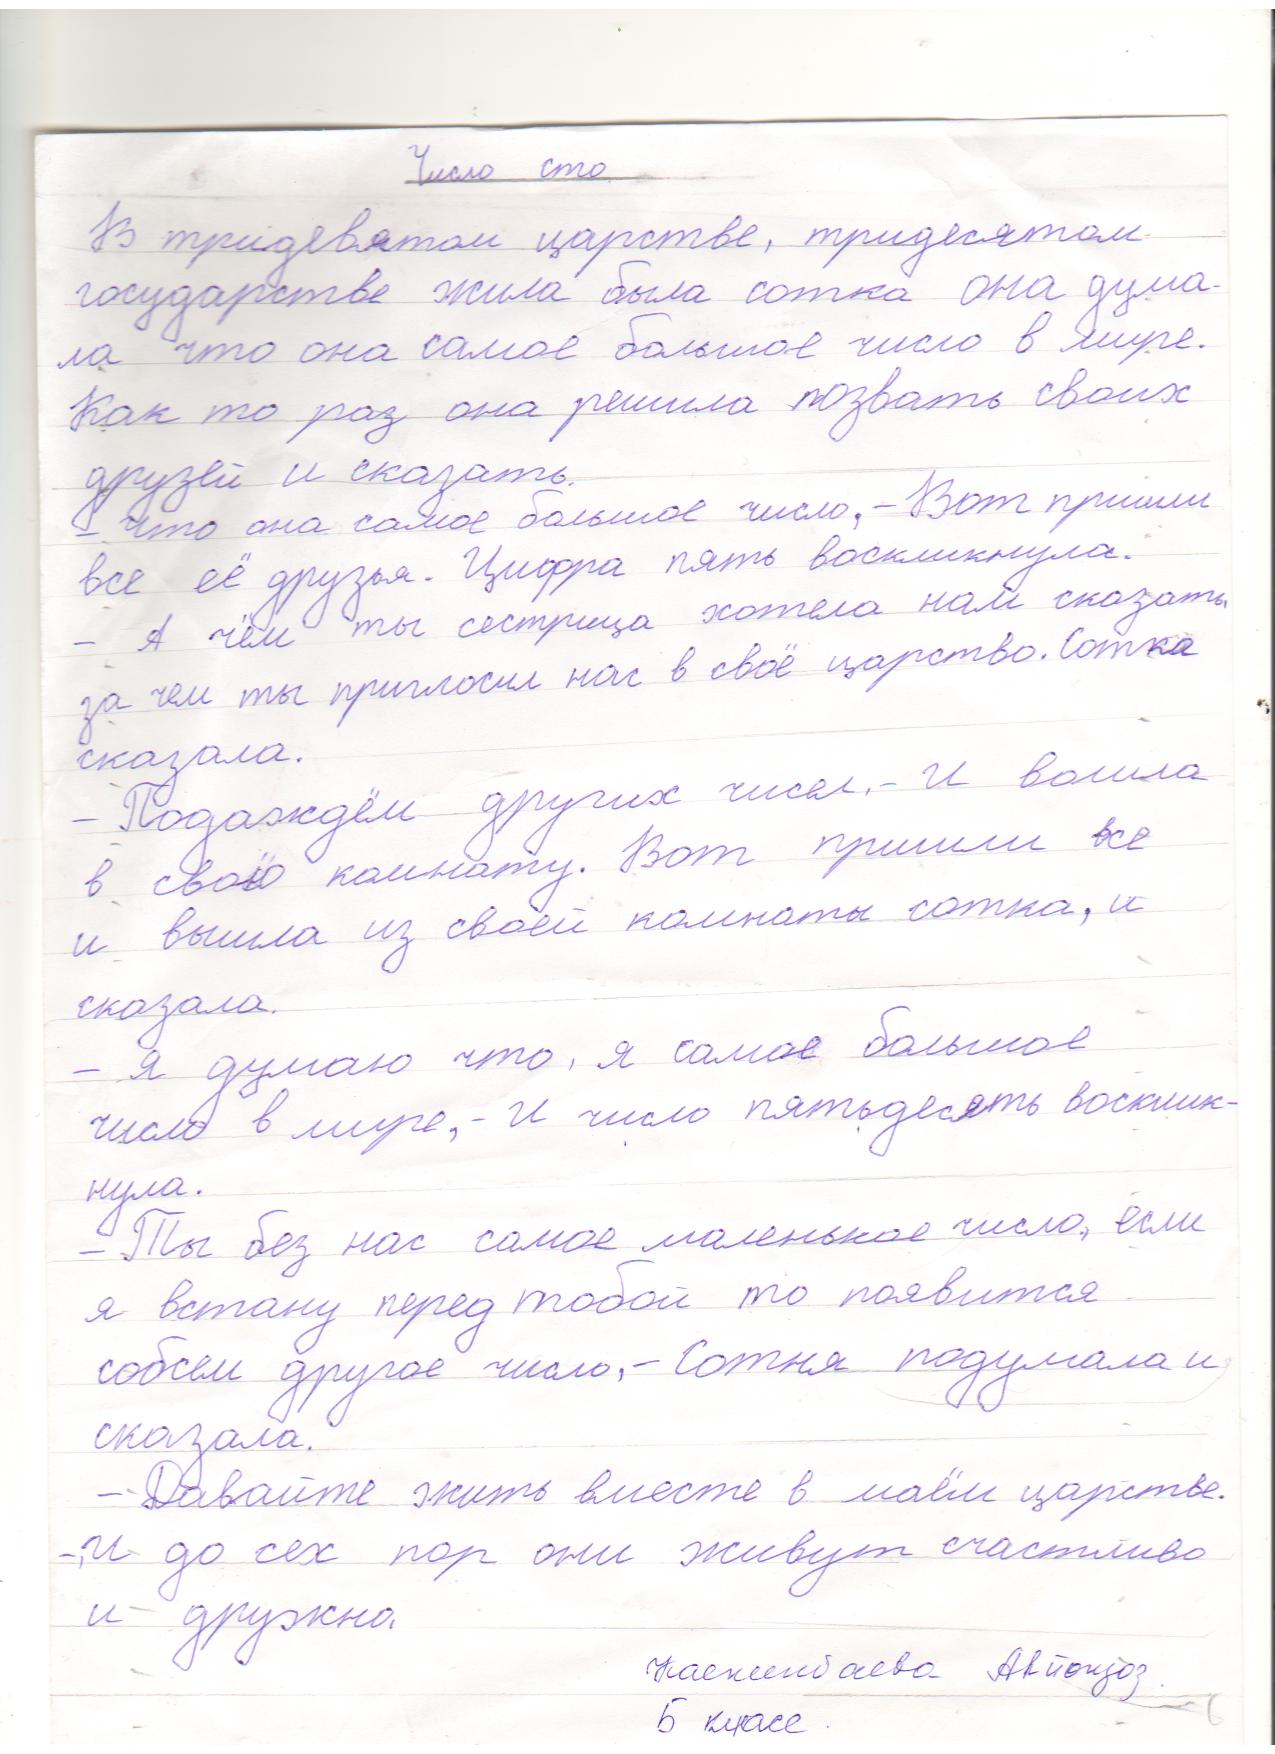 Число сто
В тридевятом царстве, тридесятом
государстве жила была сотка она дума-
ла что она самое большое число в мире.
Как то раз она решила позвать своих
друзей и сказать.
- что она самое большое число, - Вот пришли
все её друзья. Цифра пять воскликнула.
- А чём ты сестрица хотела нам сказать
за чем ты приглосил нас в своё царство. Сотка
сказала.
- Подаждём других чисел. - И вошла
в свою комнату. Вот пришли все
и вышла из своей комнаты сотка, и
сказала.
- Я думаю что, я самое большое
число в мире, - И число пятьдесять восклик-
нула.
- Ты без нас самое маленькое число, если
я встану перед тобой то появится
собсем другое число, - Сотня подумала и
сказала.
- Давайте жить вместе в маём царстве.
-, И до сех пор они живут счастливо
и дружна.
5 класс.